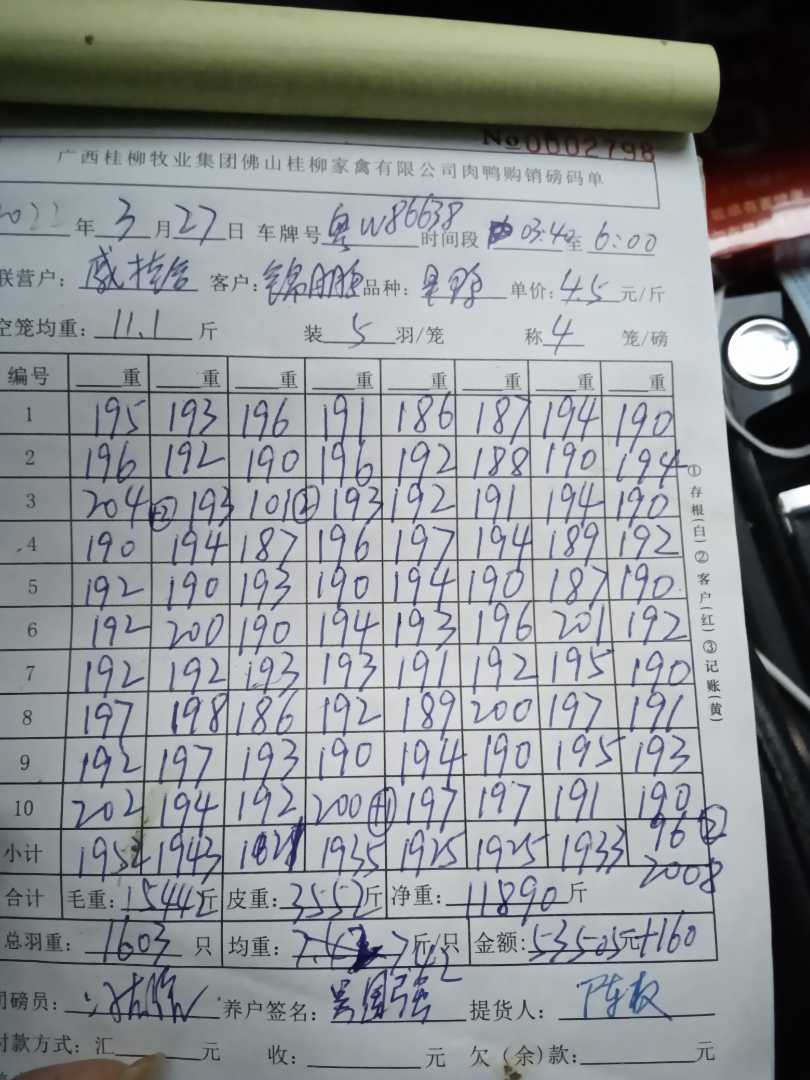 No 0002798
广西桂柳牧业集团佛山桂柳家禽有限公司肉鸭购销磅码单
2022年3月27日 车牌号粤W86638时间段 03:40至6:00
联营户: 客户:锦朋 品种: 单价:4.5元/斤
空笼均重:11.1斤 装5羽/笼 称4笼/磅
编号 重 重 重 重 重 重 重 重
1 195 193 196 191 186 187 194 190
2 196 192 190 196 192 188 190 194
3 204 +2 193 101 2 193 192 191 194 190
4 190 194 187 196 197 194 189 192
5 192 190 193 190 194 190 187 190
6 192 200 190 194 193 196 201 192
7 192 192 193 193 191 192 195 190
8 197 198 186 192 189 200 197 191
9 192 197 193 190 194 190 195 193
10 202 194 192 200 +1 197 197 191 190
96 2
小计 1952 1943 1821 1935 1925 1925 1933 2008
合计 毛重:15442斤 皮重:3552斤 净重:11890斤
总羽重:1603只 均重:7.42斤/只 金额:53505元+160
司磅员: 养户签名: 提货人:
付款方式:汇 元 收: 元 欠(余)款: 元
①存根(白)②客户(红)③记账(黄)